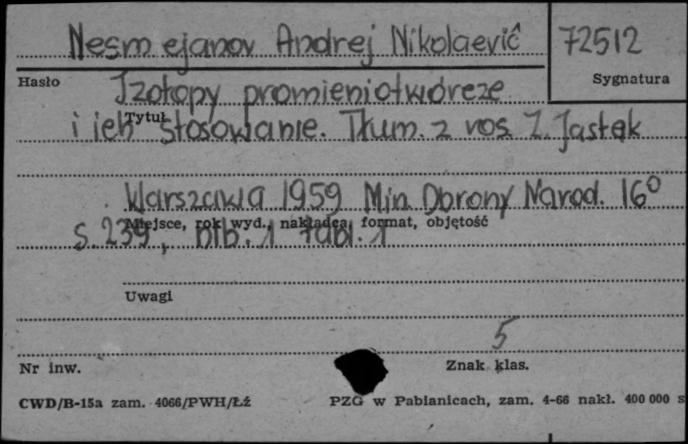 Nesmejanov Andrej Nikolaevič 72512
Hasło Sygnatura
Izotopy promieniotwórcze
Tytuł
i ich stosowanie. Tłum. z ros. Z. Jastak
Warszawa 1959 Min. Obrony Narod. 16°
Miejsce, rok wyd., nakładca, format, objętość
s. 239, nlb. 1 tabl. 1
Uwagi
5
Nr inw. Znak klas.
CWD/B-15a zam. 4066/PWH/Łź PZG w Pabianicach, zam. 4-66 nakł. 400 000 s